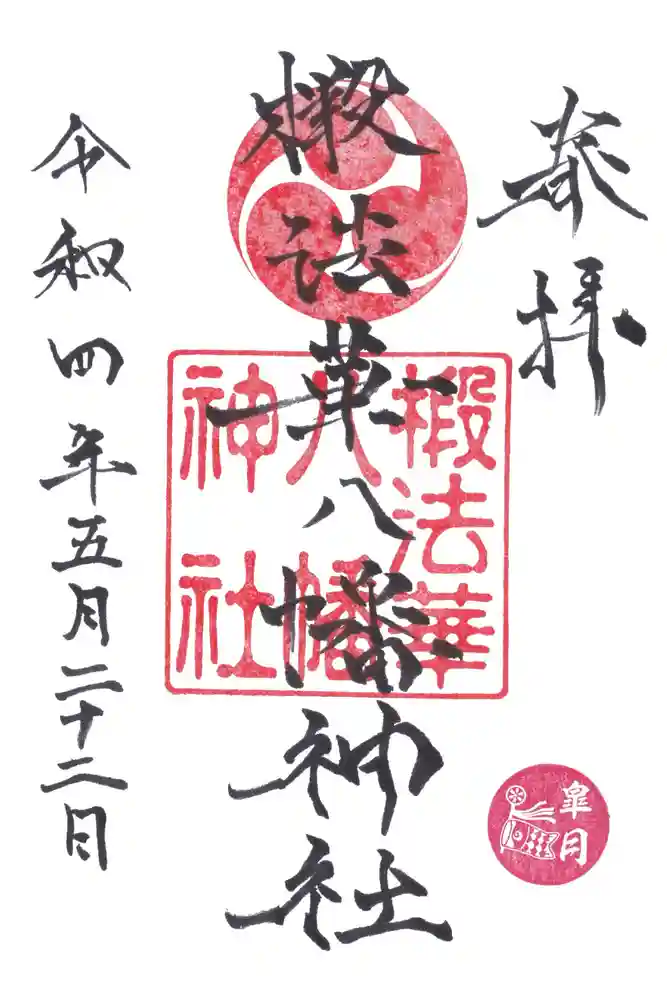 奉拝
椴法華八幡神社
椴法華
八幡
神社
令和四年五月二十二日
皐月